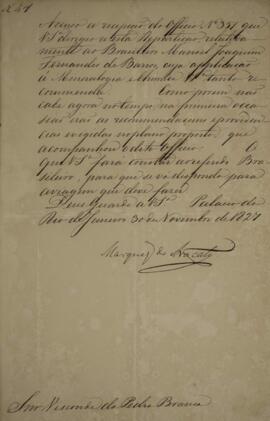 Accuso a recepção do Officio Nº 351 que
VSª dirigio a esta Repartição, relativa-
mente ao Brasileiro Manoel Joaquim
Fernandes de Barros, cuja applicação
á Mineralogia e Chimica tanto re-
commenda. Como porem não
cabe agora no tempo, na primeira occa-
sião irão as recommendaçoens e providen-
cias exigidas no plano proposto que
acompanhou o dito Officio. O
que VSª fará constar ao referido Bra-
sileiro, para que se vá dispondo para
a viagem que deve fazer.
Deus Guarde a VSª Palacio do
Rio de Janeiro 30 de Novembro de 1827
Marquez de Aracaty
Snr Visconde da Pedra Branca